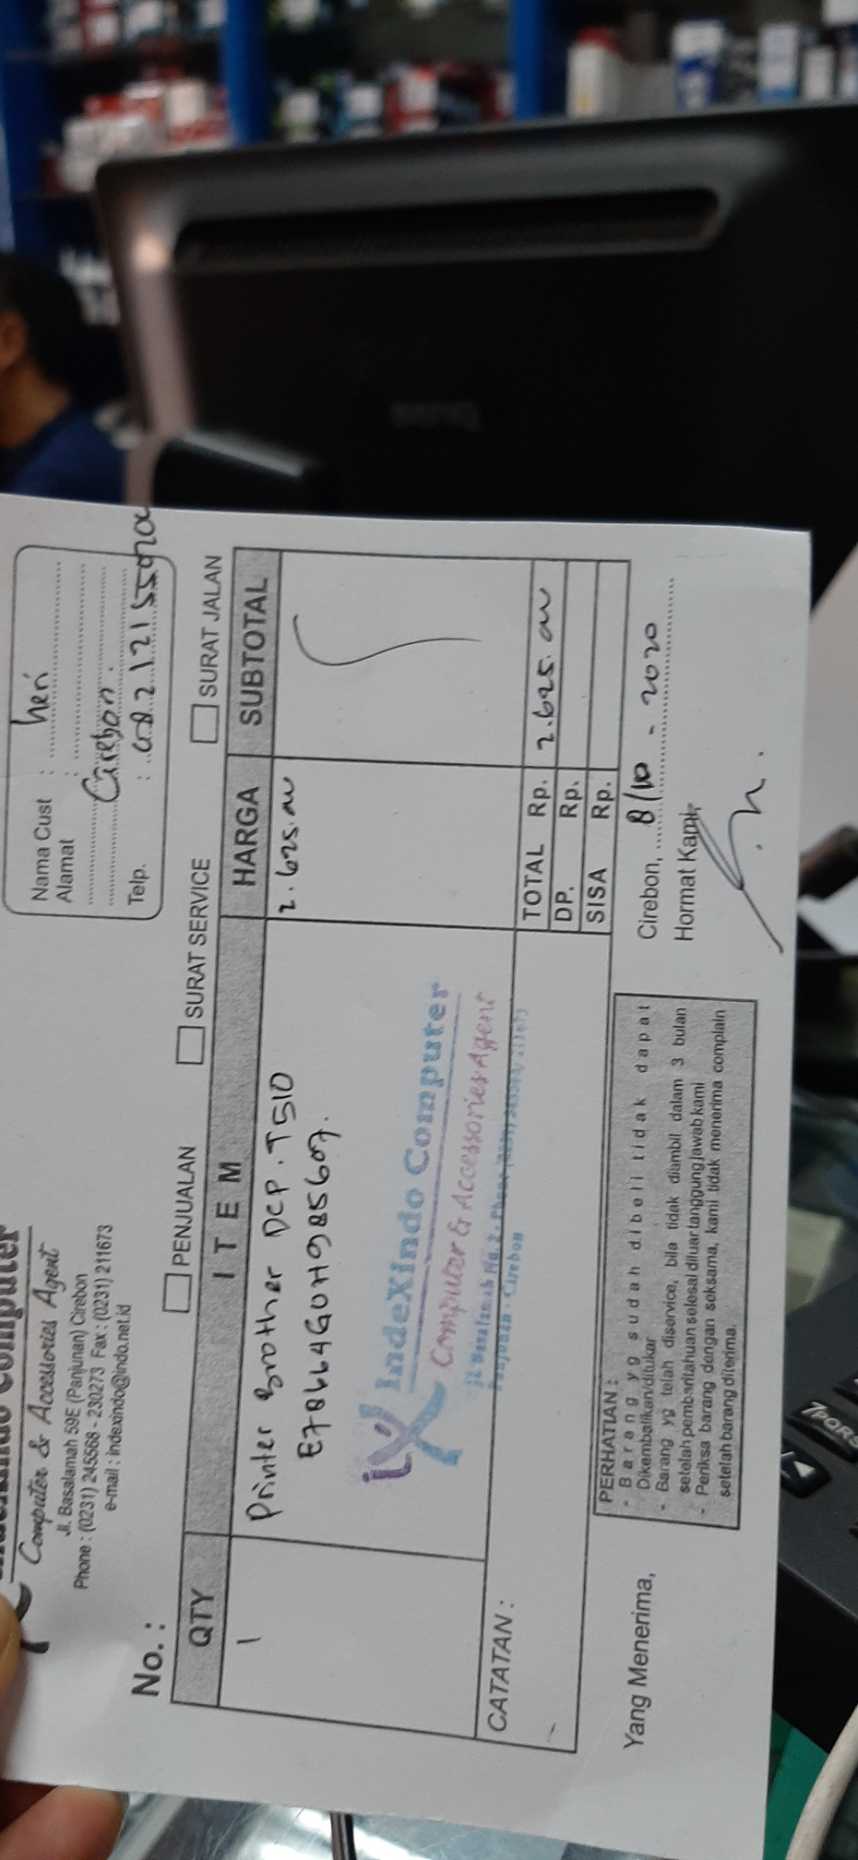 Computer
Computer & Accessories Agent
Jl. Basalamah 59E (Panjunan) Cirebon
Phone : (0231) 245568 - 230273 Fax : (0231) 211673
e-mail : indexindo@indo.net.id
Nama Cust : heri
Alamat :
Cirebon.
Telp. :
No. :
PENJUALAN
SURAT SERVICE
SURAT JALAN
QTY ITEM HARGA SUBTOTAL
1 Printer Brother DCP. T510 2.625.000
IndeXindo Computer
Computer & Accessories Agent
Panjunan - Cirebon
CATATAN :
TOTAL Rp. 2.625.000
DP. Rp.
SISA Rp.
PERHATIAN :
- Barang yg sudah dibeli tidak dapat
Dikembalikan/ditukar
- Barang yg telah diservice, bila tidak diambil dalam 3 bulan
setelah pemberitahuan selesai diluar tanggung jawab kami
- Periksa barang dengan seksama, kami tidak menerima complain
setelah barang diterima.
Yang Menerima,
Cirebon, 8/10 - 2020
Hormat Kami,
BenQ
7PQRS